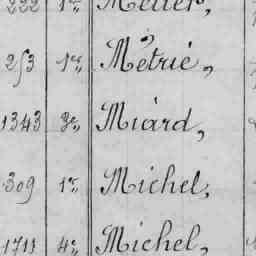 222 1re, Metter,
253 1re, Métrié,
1343 3e, Miard,
309 1re, Michel,
1711 4e, Michel,